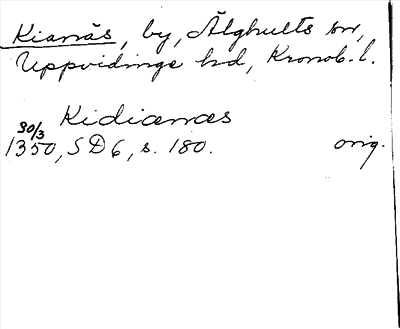 Kianäs, by, Älghults sn,
Uppvidinge hd, Kronob. l.
Kidiænæs
30/3
1350, SD 6, s. 180. orig.